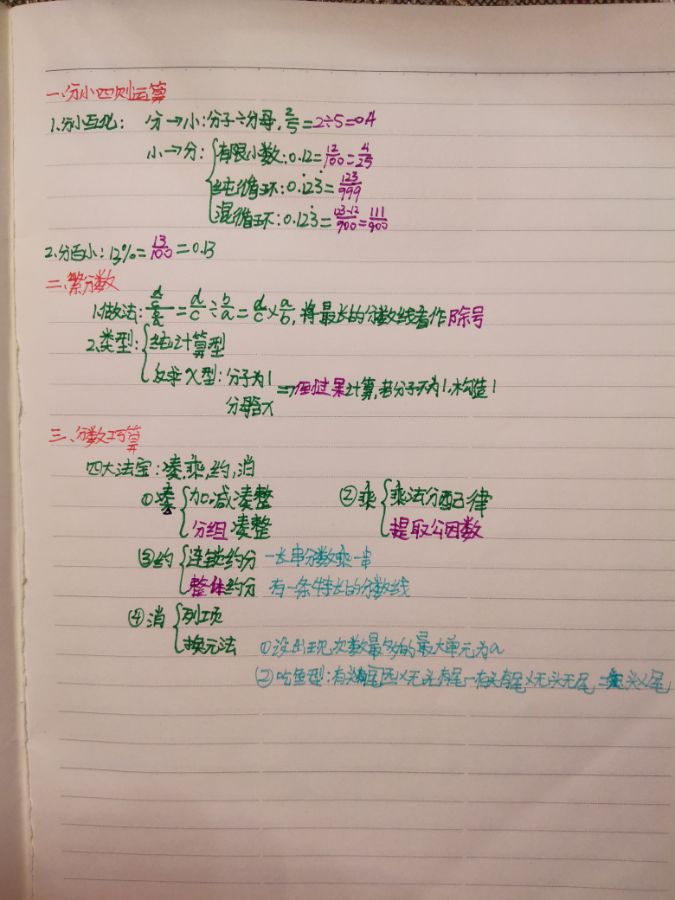 一、分小四则运算
1.分小互化： 分→小：分子÷分母，2/5=2÷5=0.4
小→分：{有限小数：0.12=12/100=4/25
纯循环：0.1̇23̇=123/999
混循环：0.123̇=123-12/900=111/900
2.分百小：13%=13/100=0.13
二、繁分数
1.做法：=d/c÷b/a=d/c×a/b，将最长的分数线看作除号
2.类型：{纯计算型
反求X型：分子为1 ⇒ 计算，若分子不为1，构造1
分母含X
三、分数巧算
四大法宝：凑，乘，约，消
①凑{加减凑整 ②乘{乘法分配律
分组凑整 提取公因数
③约{连锁约分 一长串分数乘一串
整体约分 有一条特长的分数线
④消{列项
换元法 ①设出现次数最多的最大单元为a
②吃鱼型：有头无尾×无头有尾-有头有尾×无头无尾=头×尾